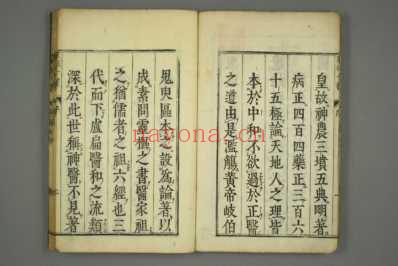 皇故神農三墳五典明著
病正四百四藥正三百六
十五極論天地人之理皆
本於中和不欲過於正醫
之道由是濫觴黃帝岐伯
鬼臾區之設爲論著以
成素問靈樞之書醫家祖
之猶儒者之祖六經也三
代而下盧扁醫和之流類
深於此世稱神醫不見著
nayona.cn